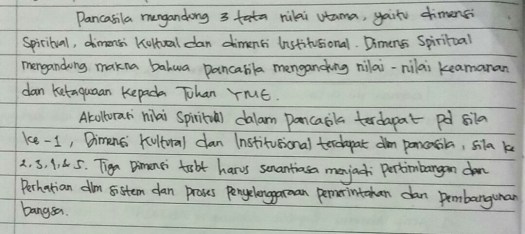 Pancasila mengandung 3 tata nilai utama, yaitu dimensi
Spiritual, dimensi Kultural dan dimensi Institusional. Dimensi Spiritual
mengandung makna bahwa pancasila mengandung nilai - nilai keamanan
dan Ketaquaan Kepada Tuhan YME.
Akulturasi nilai Spiritual dalam Pancasila terdapat pd sila
ke - 1, Dimensi Kultural dan Institusional terdapat dlm pancasila, sila ke
2, 3, 4, & 5. Tiga Dimensi trsbt harus senantiasa menjadi Pertimbangan dan
Perhatian dlm sistem dan proses Penyelenggaraan pemerintahan dan Pembangunan
bangsa.